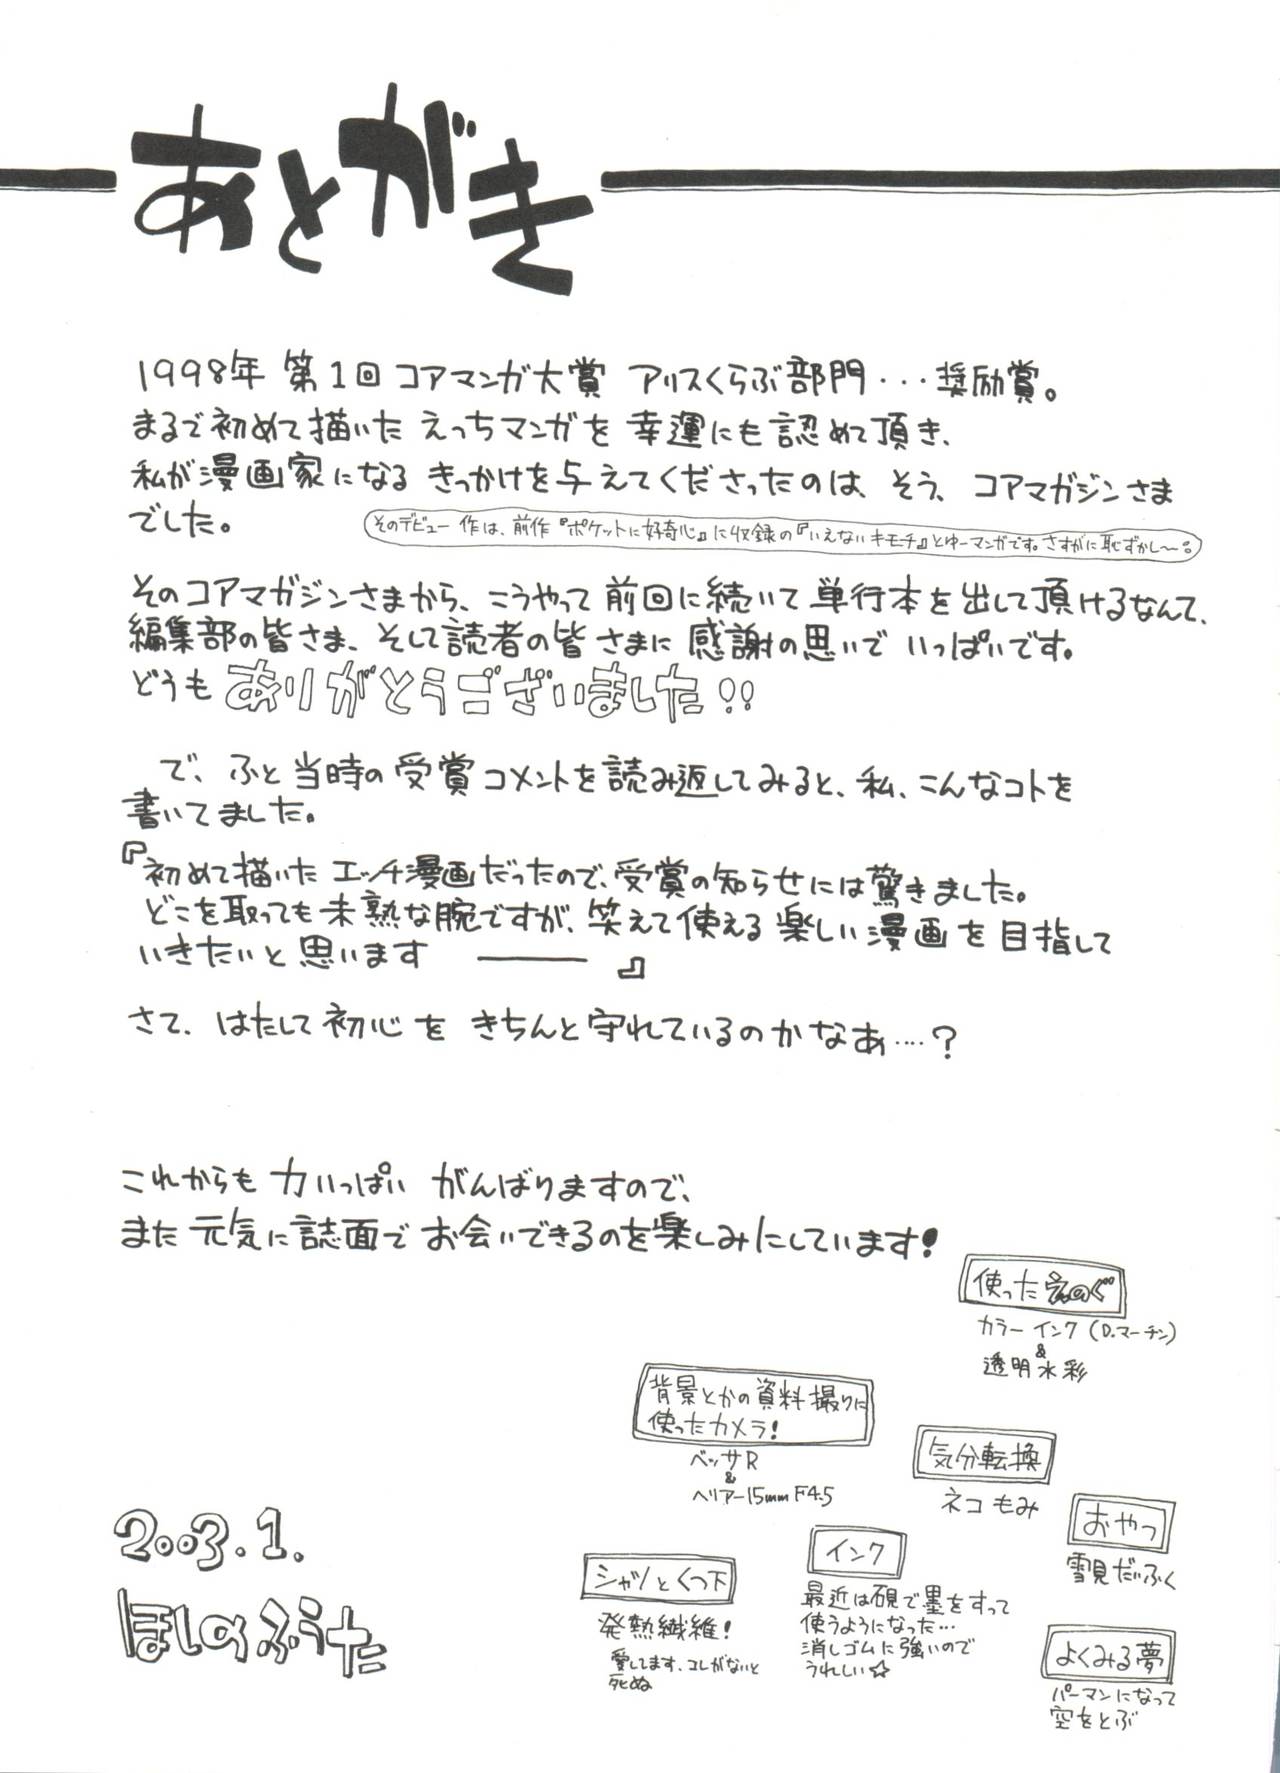 あとがき
1998年 第1回 コアマンガ大賞 アリスくらぶ部門・・・奨励賞。
まるで初めて描いた えっちマンガを 幸運にも 認めて頂き、
私が漫画家になる きっかけを与えてくださったのは、そう、コアマガジンさま
でした。
そのデビュー作は、前作『ポケットに好奇心』に収録の『いえないキモーチ』とゆーマンガです。さすがに恥ずかし〜。
そのコアマガジンさまから、こうやって 前回に続いて 単行本を出して頂けるなんて、
編集部の皆さま、そして読者の皆さまに 感謝の思いで いっぱいです。
どうも ありがとうございました!!
で、ふと当時の受賞コメントを読み返してみると、私、こんなコトを
書いてました。
『初めて描いた エッチ漫画だったので、受賞の知らせには驚きました。
どこを取っても未熟な腕ですが、笑えて使える 楽しい漫画を目指して
いきたいと思います ―――』
さて、はたして初心を きちんと守れているのかなあ‥‥?
これからも 力いっぱい がんばりますので、
また 元気に誌面で お会いできるのを楽しみにしています!
使った えのぐ
カラー インク (D.マーチン)
&
透明水彩
背景とかの資料撮りに
使ったカメラ!
ベッサR
&
ヘリアー15mm F4.5
気分転換
ネコ もみ
おやつ
雪見だいふく
インク
最近は硯で墨をすって
使うようになった…
消しゴムに強いので
うれしい☆
シャツとくつ下
発熱繊維!
愛してます、コレがないと
死ぬ
よくみる夢
パーマンになって
空をとぶ
2003.1.
ほしのふうた